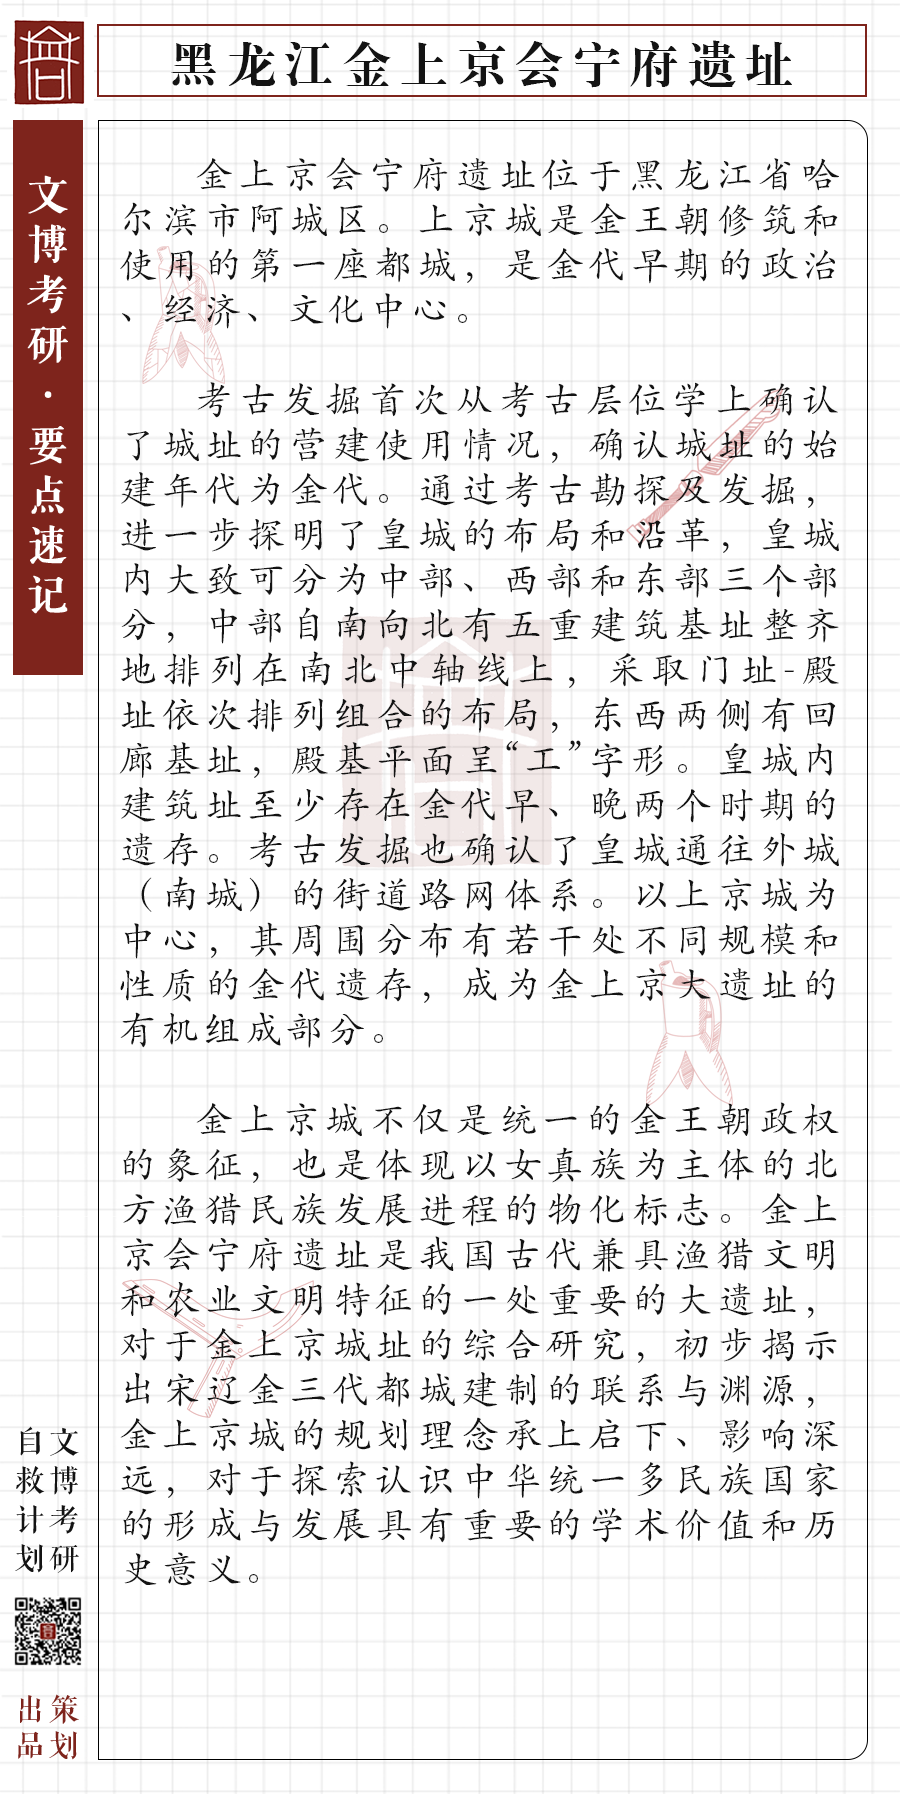 黑龙江金上京会宁府遗址
文博考研·要点速记
金上京会宁府遗址位于黑龙江省哈
尔滨市阿城区。上京城是金王朝修筑和
使用的第一座都城，是金代早期的政治
、经济、文化中心。
考古发掘首次从考古层位学上确认
了城址的营建使用情况，确认城址的始
建年代为金代。通过考古勘探及发掘，
进一步探明了皇城的布局和沿革，皇城
内大致可分为中部、西部和东部三个部
分，中部自南向北有五重建筑基址整齐
地排列在南北中轴线上，采取门址-殿
址依次排列组合的布局，东西两侧有回
廊基址，殿基平面呈“工”字形。皇城内
建筑址至少存在金代早、晚两个时期的
遗存。考古发掘也确认了皇城通往外城
（南城）的街道路网体系。以上京城为
中心，其周围分布有若干处不同规模和
性质的金代遗存，成为金上京大遗址的
有机组成部分。
金上京城不仅是统一的金王朝政权
的象征，也是体现以女真族为主体的北
方渔猎民族发展进程的物化标志。金上
京会宁府遗址是我国古代兼具渔猎文明
和农业文明特征的一处重要的大遗址，
对于金上京城址的综合研究，初步揭示
出宋辽金三代都城建制的联系与渊源，
金上京城的规划理念承上启下、影响深
远，对于探索认识中华统一多民族国家
的形成与发展具有重要的学术价值和历
史意义。
文博考研
自救计划
策划
出品